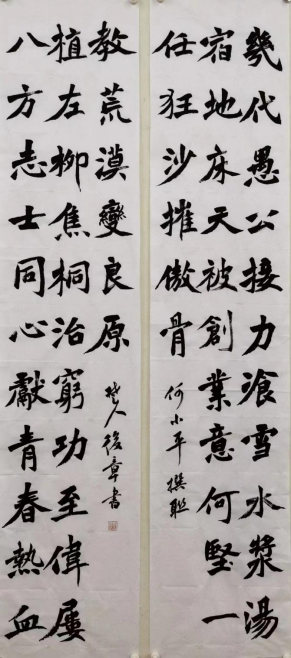 幾代愚公接力飡雪水漿湯
宿地床天被創業意何堅一
任狂沙摧傲骨
何小平撰聯
八方志士同心獻青春熱血
植左柳焦桐治窮功至偉屢
教荒漠變良原
楚人後章書